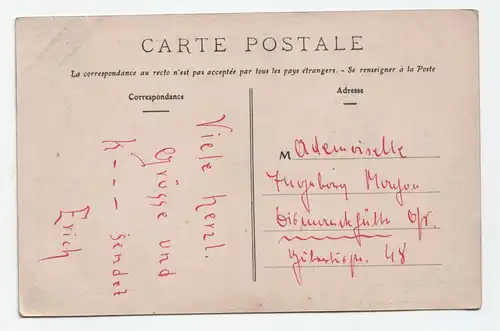 CARTE POSTALE
La correspondance au recto n'est pas acceptée par tous les pays étrangers. - Se renseigner à la Poste
Correspondance
Viele herzl.
Grüsse und
K - - - sendet
Erich
Adresse
Mademoiselle
Ingeborg
Bismarckhütte O/S.
48